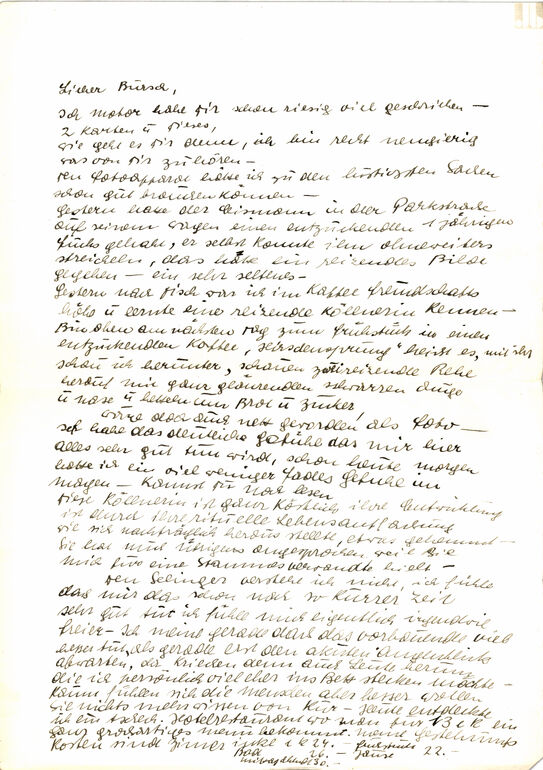 Lieber Bursch,
Ich motor habe Dir schon riesig viel geschrieben —
2 Karten u dieses,
wie geht es Dir denn, ich bin recht neugierig
was von Dir zu hören —
Den Fotoapparat hätte ich zu den lustigsten Sachen
schon gut brauchen können —
Gestern hatte der Eismann in der Parkstrasse
auf seinem Wagen einen entzückenden 1 jährigen
Fuchs gehabt, er selbst konnte ihn ohneweiters
streicheln, das hätte ein reizendes Bild
gegeben — ein sehr seltenes —
Gestern nach Tisch war ich im Kaffee Freundschafts
höhe u lernte eine reizende Köllnerin kennen —
Bin oben am nächsten Tag zum Frühstück in einen
entzückenden Kaffee, "Hirschensprung" heisst es, mit ihr
schau ich herunter, schauen zwei reizende Rehe
herauf mit ganz glänzenden schwarzen Augen
u Nase u betteln um Brot u Zucker,
wäre das auch nett geworden als Foto —
Ich habe das deutliche Gefühl das mir hier
alles sehr gut tun wird, schon heute morgen
hatte ich ein viel weniger fades Gefühl im
Magen — Kannst Du noch lesen
Diese Köllnerin ist ganz köstlich, ihre Entrüstung
ist durch ihre rituelle Lebensauffassung
wie sich nachträglich heraus stellte, etwas gehemmt —
Sie hat mich übrigens angesprochen, weil sie
mich für eine Stammesverwandte hielt —
Den Seelinger verstehe ich nicht, ich fühle
das mir das schon nach so kurzer Zeit
sehr gut tut ich fühle mich eigentlich irgendwie
freier — Ich meine gerade dass das vorbauende viel
besser tut, als gerade erst den akuten Augenblick
abwarten, da kriechen denn auch Leute herum
die ich persönlich viel eher ins Bett stecken möchte —
Kaum fühlen sich die Menschen aber besser wollen
sie nichts mehr wissen von Kur — Heute entdeckte
ich ein tschech. Hotelrestaurant wo man für 13 cK ein
ganz grossartiges Menu bekommt. Meine Gestehungs
kosten sind Zimer 24. — Frühstück
Bad 26. — Jause 22. —
30. —